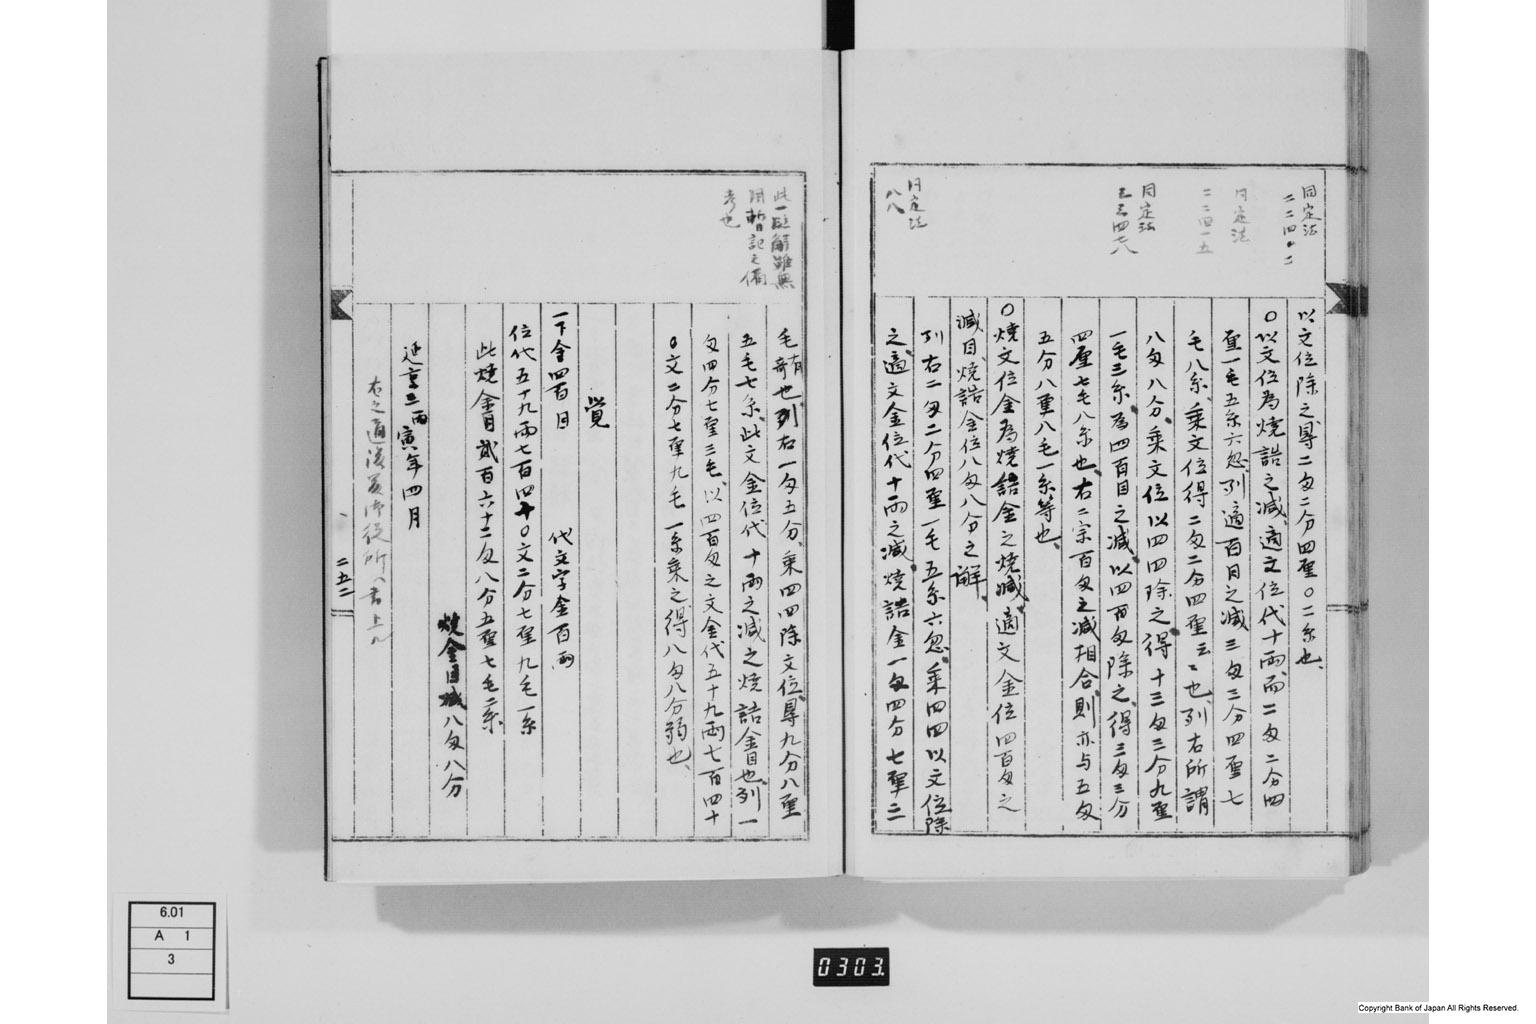 同定法
二二四〇二
同定法
二二四一五
同定法
三三四七八
同定法
八八
以文位除之得二匁二分四厘〇二糸也、
〇以文位為焼詰之減、適文位代十両、而二匁二分四
厘一毛五糸六忽、列適百目之減三匁三分四厘七
毛八糸、乗文位得二匁二分四厘云々也、列右所謂
八匁八分、乗文位以四四除之、得十三匁三分九厘
一毛三糸、為四百目之減、以四百匁除之、得三匁三分
四厘七毛八糸也、右二宗百匁之減相合、則亦与五匁
五分八厘八毛一糸等也、
〇焼文位金為焼詰金之焼減、適文金位四百匁之
減目、焼詰金位八匁八分之解、
列右二匁二分四厘一毛五糸六忽、乗四四以文位除
之、適文金位代十両之減、焼詰金一匁四分七厘三
此一段解雖無
用暫記之備
考也
毛有奇也、列右一匁五分、乗四四除文位、得九分八厘
五毛七糸、此文金位代十両之減之焼詰金目也、列一
匁四分七厘三毛、以四百匁之文金代五十九両七百四十
〇文二分七厘九毛一糸乗之、得八匁八分弱也、
覚
一下金四百目　代文字金百両
位代五十九両七百四十〇文二分七厘九毛一糸
此焼金目弐百六十二匁八分五厘七毛二糸
焼金目減八匁八分
延享三丙寅年四月
右之通後藤役所へ書上ル
二五二
6.01
A 1
3
0303.
Copyright Bank of Japan All Rights Reserved.